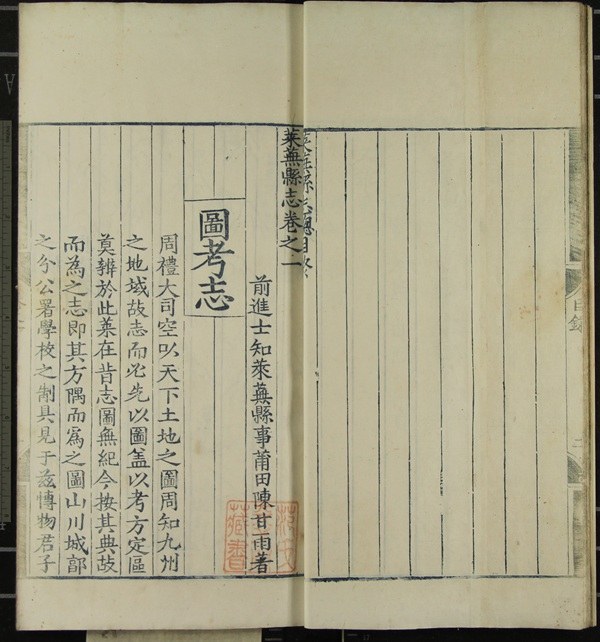 目錄
二
萊蕪縣志卷之一
前進士知萊蕪縣事莆田陳甘雨著
圖考志
周禮大司空以天下土地之圖周知九州
之地域故志而必先以圖盖以考方定區
莫辨於此萊在昔志圖無紀今按其典故
而為之志即其方隅而爲之圖山川城郭
之分公署學校之制具見于兹愽物君子